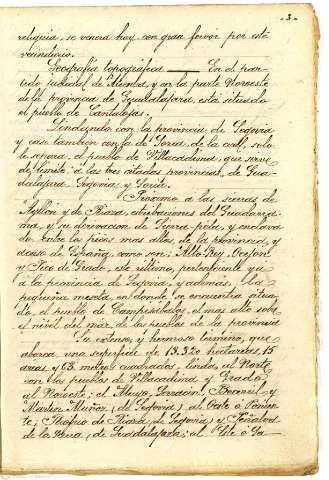 - 3 -
reliquia, se venera hoy con gran fervor por este
vecindario.
Geografía topográfica ___ En el par-
tido judicial de Atienza, y en la parte Noroeste
de la provincia de Guadalajara, está situado
el pueblo de Cantalojas.
Lindando con la provincia de Segovia
y casi tambien con la de Soria, de la cual, solo
le separa, el pueblo de Villacadima, que sirve
de limite á las tres citadas provincias, de Gua-
dalajara, Segovia y Soria.
Próximo a las sierras de
Ayllón y de Riaza, estribaciones del Guadarra-
ma, y su derivación de Somo-sierra, y enclava
do entre los picos mas altos de la provincia, y
acaso de España, como son: Alto-Rey, Ocejón
y Pico de Grado, este último, perteneciente ya
a la provincia de Segovia, y ademas, á la
pequeña meseta en donde se encuentra situa-
do, el pueblo de Campisábalos, el mas alto sobre
el nivel del mar, de los pueblos de la provincia
Su extenso, y hermoso término, que
abarca una superficie de 13.320 hectáreas, 15
areas y 63 metros cuadrados, linda, al Norte
con los pueblos de Villacadima y Grado,
al Noroeste; el Muyo, Serracín, Becerril y
Martín Muñoz, (de Segovia) al Oeste ó Ponien-
te, Riofrio de Riaza (de Segovia) y Peñalva
de la Sierra, (de Guadalajara; al Este ó Sa-